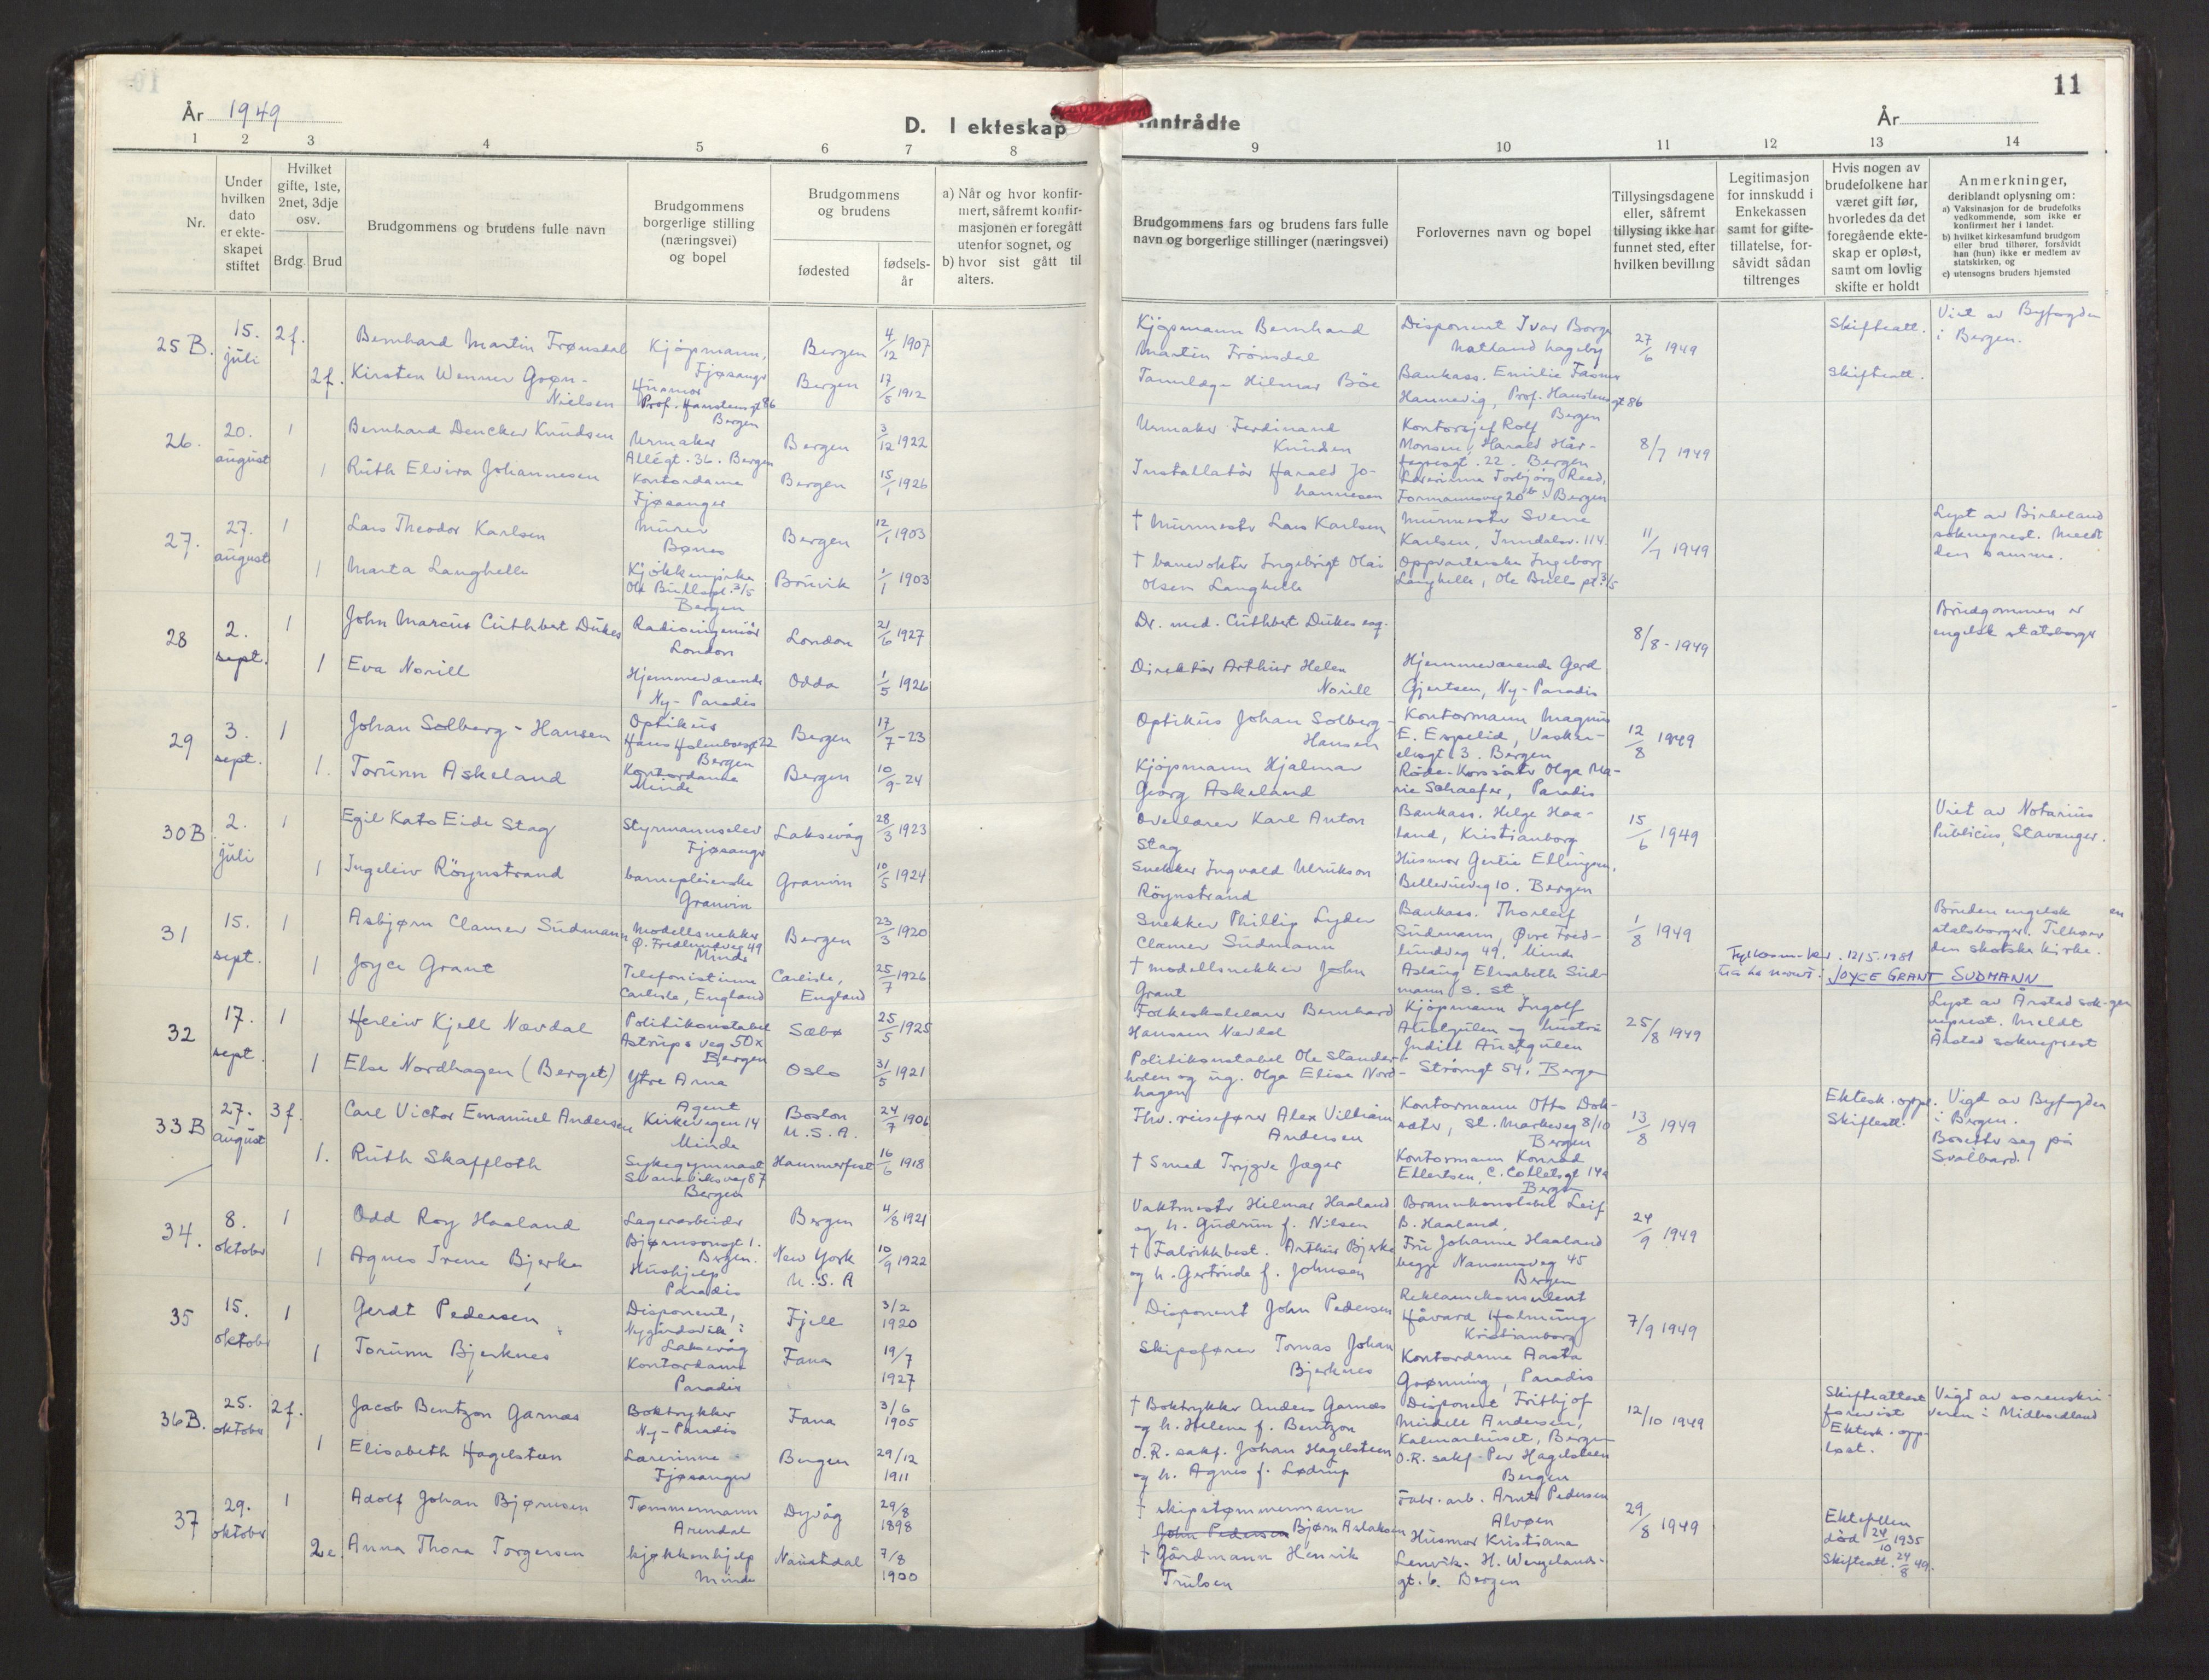 År 1949
D. I ekteskap
inntrådte
År
11
1 2 3 4 5 6 7 8 9 10 11 12 13 14
Nr.
Under hvilken dato er ekte-skapet stiftet
Hvilket gifte, 1ste, 2net, 3dje osv.
Brdg. Brud
Brudgommens og brudens fulle navn
Brudgommens borgerlige stilling (næringsvei) og bopel
Brudgommens og brudens
fødested
fødsels-år
a) Når og hvor konfir-mert, såfremt konfir-masjonen er foregått utenfor sognet, og
b) hvor sist gått til alters.
Brudgommens fars og brudens fars fulle navn og borgerlige stillinger (næringsvei)
Forlovernes navn og bopel
Tillysingsdagene eller, såfremt tillysing ikke har funnet sted, efter hvilken bevilling
Legitimasjon for innskudd i Enkekassen samt for gifte-tillatelse, for-såvidt sådan tiltrenges
Hvis nogen av brudefolkene har været gift før, hvorledes da det foregående ekte-skap er opløst, samt om lovlig skifte er holdt
Anmerkninger, deriblandt oplysning om:
a) Vaksinasjon for de brudefolks vedkommende, som ikke er konfirmert her i landet.
b) hvilket kirkesamfund brudgom eller brud tilhører, forsåvidt han (hun) ikke er medlem av statskirken, og
c) utensogns bruders hjemsted
25 B. 15. juli 2f. Bernhard Martin Frønsdal Kjøpmann, Fjøsanger Bergen 4/12 1907
Kjøpmann Bernhard Martin Frønsdal Disponent Ivar Borge Natland hageby 27/6 1949 Skifteatt. Viet av Byfogden i Bergen.
2f. Kirsten Wenner Grøn-Nielsen Husmor Prof. Hansteensgt 86 Bergen Bergen 17/5 1912
Tannlæge Hilmar Böe Bankass. Emilie Fasmer Hannevig, Prof. Hansteensgt 86 Bergen Skifteatt.
26. 20. august 1 Bernhard Dencker Knudsen Urmaker Allégt. 36. Bergen Bergen 3/12 1922
Urmaker Ferdinand Knudsen Kontorsjef Rolf Monsen, Harald Hår-fagresgt. 22. Bergen 8/7 1949
1 Ruth Elvira Johannesen Kontordame Fjøsanger Bergen 15/1 1926
Installatör Harald Jo-hannesen Lærerinne Torbjørg Reed, Formannsveg 20b. Bergen
27. 27. august 1 Lars Theodor Karlsen Murer Bønes Bergen 12/1 1903
† Murmester Lars Karlsen Murmester Sverre Karlsen, Inndalsv. 114. 11/7 1949 Lyst av Birkeland sokneprest. Meldt den samme.
1 Marta Langhelle Kjøkkenpike Ole Bullspl. 3/5 Bergen Bruvik 1/1 1903
† banevokter Ingebrigt Olai Olsen Langhelle Oppvarterske Ingeborg Langhelle, Ole Bulls pl. 3/5
28 2. sept. 1 John Marcus Cuthbert Dukes Radioingeniör London London 21/6 1927
Dr. med. Cuthbert Dukes esq. 8/8 - 1949 Brudgommen er engelsk statsborger
1 Eva Norill Hjemmeværende Ny-Paradis Odda 1/5 1926
Direktör Arthur Helen Norill Hjemmeværende Gerd Gjertsen, Ny-Paradis
29 3. sept. 1 Johan Solberg-Hansen Optikus Hans Holmboesgt 22 Bergen Bergen 17/7-23
Optikus Johan Solberg-Hansen Kontormann Magnus E. Espelid, Vasker-elvsgt 3. Bergen 12/8 1949
1. Torunn Askeland Kontordame Minde Bergen 10/9-24
Kjöpmann Hjalmar Georg Askeland Röde-Korssöster Olga Ma-rie Schaefer, Paradis
30 B. 2. juli 1 Egil Kato Eide Stag Styrmannselev Fjøsanger Laksevåg 28/3 1923
Overlærer Karl Anton Stag Bankass. Helge Haa-land, Kristianborg 15/6 1949 Viet av Notarius Publicus, Stavanger.
1 Ingeleiv Röynstrand barnepleierske Granvin Granvin 10/5 1924
Snekker Ingvald Ulrikson Röynstrand Husmor Gertie Ellingsen, Bellevueveg 10. Bergen
31 15. sept. 1 Asbjørn Clamer Südmann Modellsnekker Ø. Fredlundveg 49 Minde Bergen 23/3 1920
Snekker Phillip Lyder Clamer Südmann Bankass. Thorleif Südmann, Øvre Fred-lundveg 49, Minde 1/8 1949 Bruden engelsk statsborger. Tilhører den skotske kirke.
1 Joyce Grant Telefonistinne Carlisle, England Carlisle, England 25/7 1926
† modellsnekker John Grant Aslaug Elisabeth Süd-mann s. st. 12/5.1981 JOYCE GRANT SUDMANN
32 17. sept. 1 Herleiv Kjell Nævdal Politikonstabel Astrups veg 50x Bergen Sæbø 25/5 1925
Folkeskolelærer Bernhard Hansen Nævdal Kjöpmann Ingolf Austgulen og hustru Judith Austgulen 25/8 1949 Lyst av Årstad sok-neprest. Meldt Årstad sokneprest
1 Else Nordhagen (Berget) Ytre Arna Oslo 31/5 1921
Politikonstabel Ole Stander-holen og ug. Olga Elise Nord-hagen Strömgt 54, Bergen
33 B 27. august 3 f. Carl Victor Emanuel Andersen Agent Kirkevegen 14 Minde Boston U.S.A. 24/7 1906
Thv. reisefører Alex Villiam Andersen Kontormann Otto Dok-sæter, St. Markeveg 8/10 Bergen 13/8 1949 Ektesk. oppl. Skifteatt. Vigd av Byfogden i Bergen. Bosetter seg på Svalbard.
1. Ruth Skaffloth Sykegymnast Svaneviksveg 87 Bergen Hammerfest 16/6 1918
† Smed Trygve Jæger Kontormann Konrad Ellertsen, C. Colletsgt 14a Bergen
34. 8. oktober 1 Odd Roy Haaland Lagerarbeider Bjørnsonsgt 1. Bergen. Bergen 4/8 1921
Vaktmester Hilmar Haaland og h. Gudrun f. Nilsen Brannkonstabel Leif B. Haaland, 24/9 1949
1 Agnes Irene Bjerke Hushjelp Paradis New York U.S.A 10/9 1922
† Fabrikkbest. Arthur Bjerke og h. Gertrude f. Johnsen Fru Johanne Haaland begge Nansensveg 45 Bergen
35 15. oktober 1 Gerdt Pedersen Disponent, Nygårdsvik i Laksevåg Fjell 3/2 1920
Disponent John Pedersen Reklamekonsulent Håvard Holmung Kristianborg 7/9 1949
1 Torunn Bjerknes Kontordame Paradis Fana 19/7 1927
Skipsfører Tomas Johan Bjerknes Kontordame Aasta Grønning, Paradis
36 B. 25. oktober 2 f. Jacob Bentzon Garnæs Boktrykker Ny-Paradis Fana 3/6 1905
† Boktrykker Anders Garnæs og h. Helene f. Bentzon Disponent Frithjof Mikkell Andersen, Kalmarhuset, Bergen 12/10 1949 Skifteattest forevist Ektesk. opp-løst. Vigd av sorenskri-veren i Midhordland
1 Elisabeth Hagelsteen Lærerinne Fjøsanger Bergen 29/12 1911
O.R. sakf. Johan Hagelsteen og h. Agnes f. Lødrup O.R. sakf. Per Hagelsteen Bergen
37 29. oktober 1 Adolf Johan Bjørnsen Tømmermann Arendal Dyvåg 29/8 1898
† skipstømmermann John Pedersen Bjørn Aslaksen Fabr. arb. Arnt Pedersen Alvøen 29/8 1949 Ektefellen død 24/10 1935 Skifteatt. 24/8 49.
2e. Anna Thora Torgersen kjøkkenhjelp Minde Naustdal 7/8 1900
† Gårdmann Henrik Trulsen Husmor Kristiane Lenvik. H. Wergelands-gt. 6. Bergen